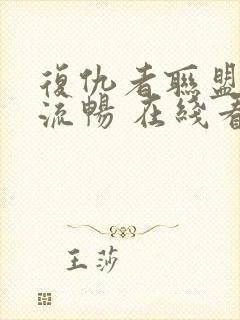 復仇者聯盟
流暢 在綫看
王莎